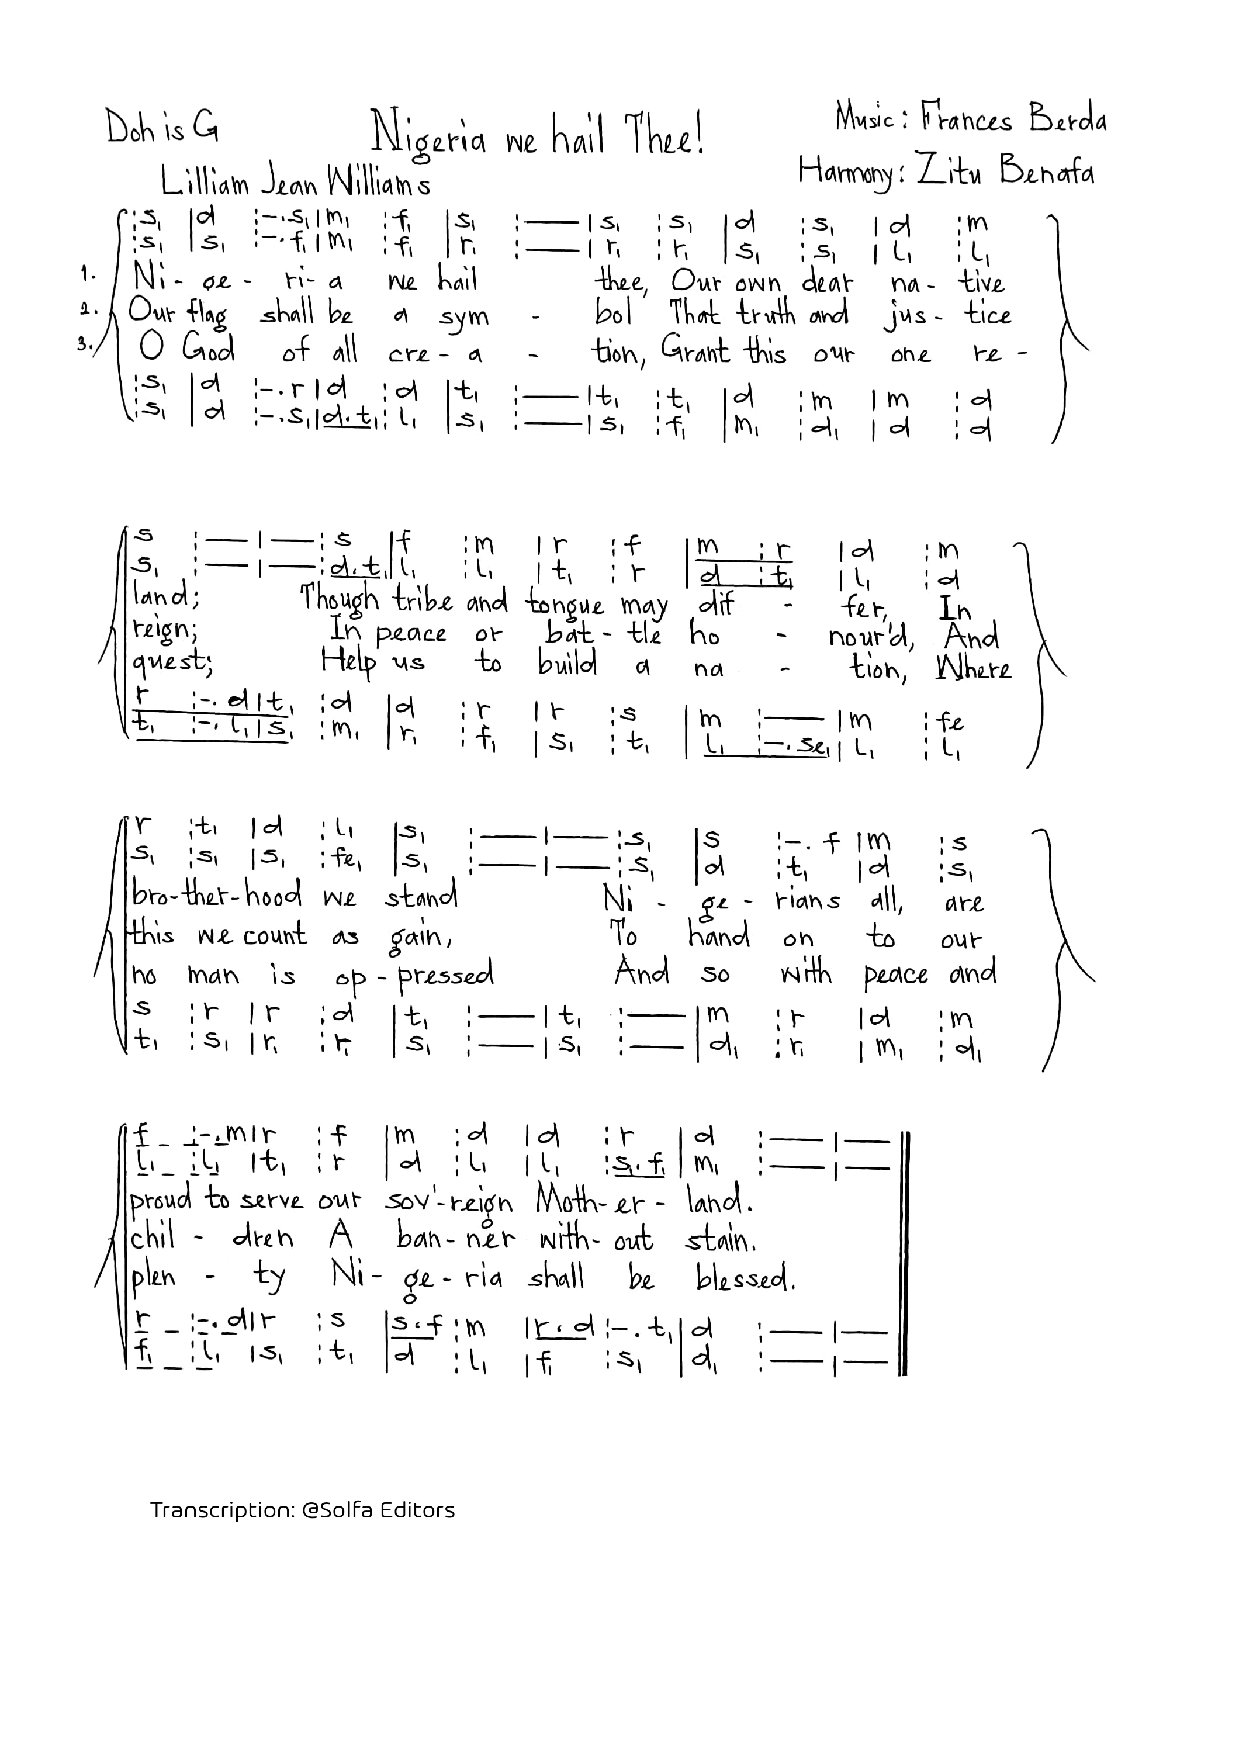 Doh is G
Nigeria we hail Thee!
Music: Frances Berda
Lilliam Jean Williams
Harmony: Zitu Benafa
:s₁ |d :-.s₁|m₁ :f₁ |s₁ :—|s₁ :s₁ |d :s₁ |d :m
:s₁ |s₁ :-.f₁|m₁ :f₁ |r₁ :—|r₁ :r₁ |s₁ :s₁ |l₁ :l₁
1. Ni- ge- ri- a we hail thee, Our own dear na- tive
2. Our flag shall be a sym - bol That truth and jus- tice
3. O God of all cre-a - tion, Grant this our one re-
:s₁ |d :-.r|d :d |t₁ :—|t₁ :t₁ |d :m |m :d
:s₁ |d :-.s₁|d.t₁:l₁ |s₁ :—|s₁ :f₁ |m₁ :d₁ |d :d
s :—|—:s |f :m |r :f |m :r |d :m
s₁ :—|—:d.t₁|l₁ :l₁ |t₁ :r |d :t₁ |l₁ :d
land; Though tribe and tongue may dif - fer, In
reign; In peace or bat-tle ho - nour'd, And
quest; Help us to build a na - tion, Where
r :-.d|t₁ :d |d :r |r :s |m :—|m :fe
t₁ :-.l₁|s₁ :m₁ |r₁ :f₁ |s₁ :t₁ |l₁ :-.se₁|l₁ :l₁
r :t₁ |d :l₁ |s₁ :—|—:s₁ |s :-.f|m :s
s₁ :s₁ |s₁ :fe₁ |s₁ :—|—:s₁ |d :t₁ |d :s₁
bro-ther-hood we stand Ni - ge - rians all, are
this we count as gain, To hand on to our
no man is op-pressed And so with peace and
s :r |r :d |t₁ :—|t₁ :—|m :r |d :m
t₁ :s₁ |r₁ :r₁ |s₁ :—|s₁ :—|d₁ :r₁ |m₁ :d₁
f :-.m|r :f |m :d |d :r |d :—|—
l₁ :l₁ |t₁ :r |d :l₁ |l₁ :s₁.f₁|m₁ :—|—
proud to serve our sov'-reign Moth-er- land.
chil - dren A ban-ner with-out stain.
plen - ty Ni- ge-ria shall be blessed.
r :-.d|r :s |s.f:m |r.d:-.t₁|d :—|—
f₁ :l₁ |s₁ :t₁ |d :l₁ |f₁ :s₁ |d₁ :—|—
Transcription: @SolFa Editors